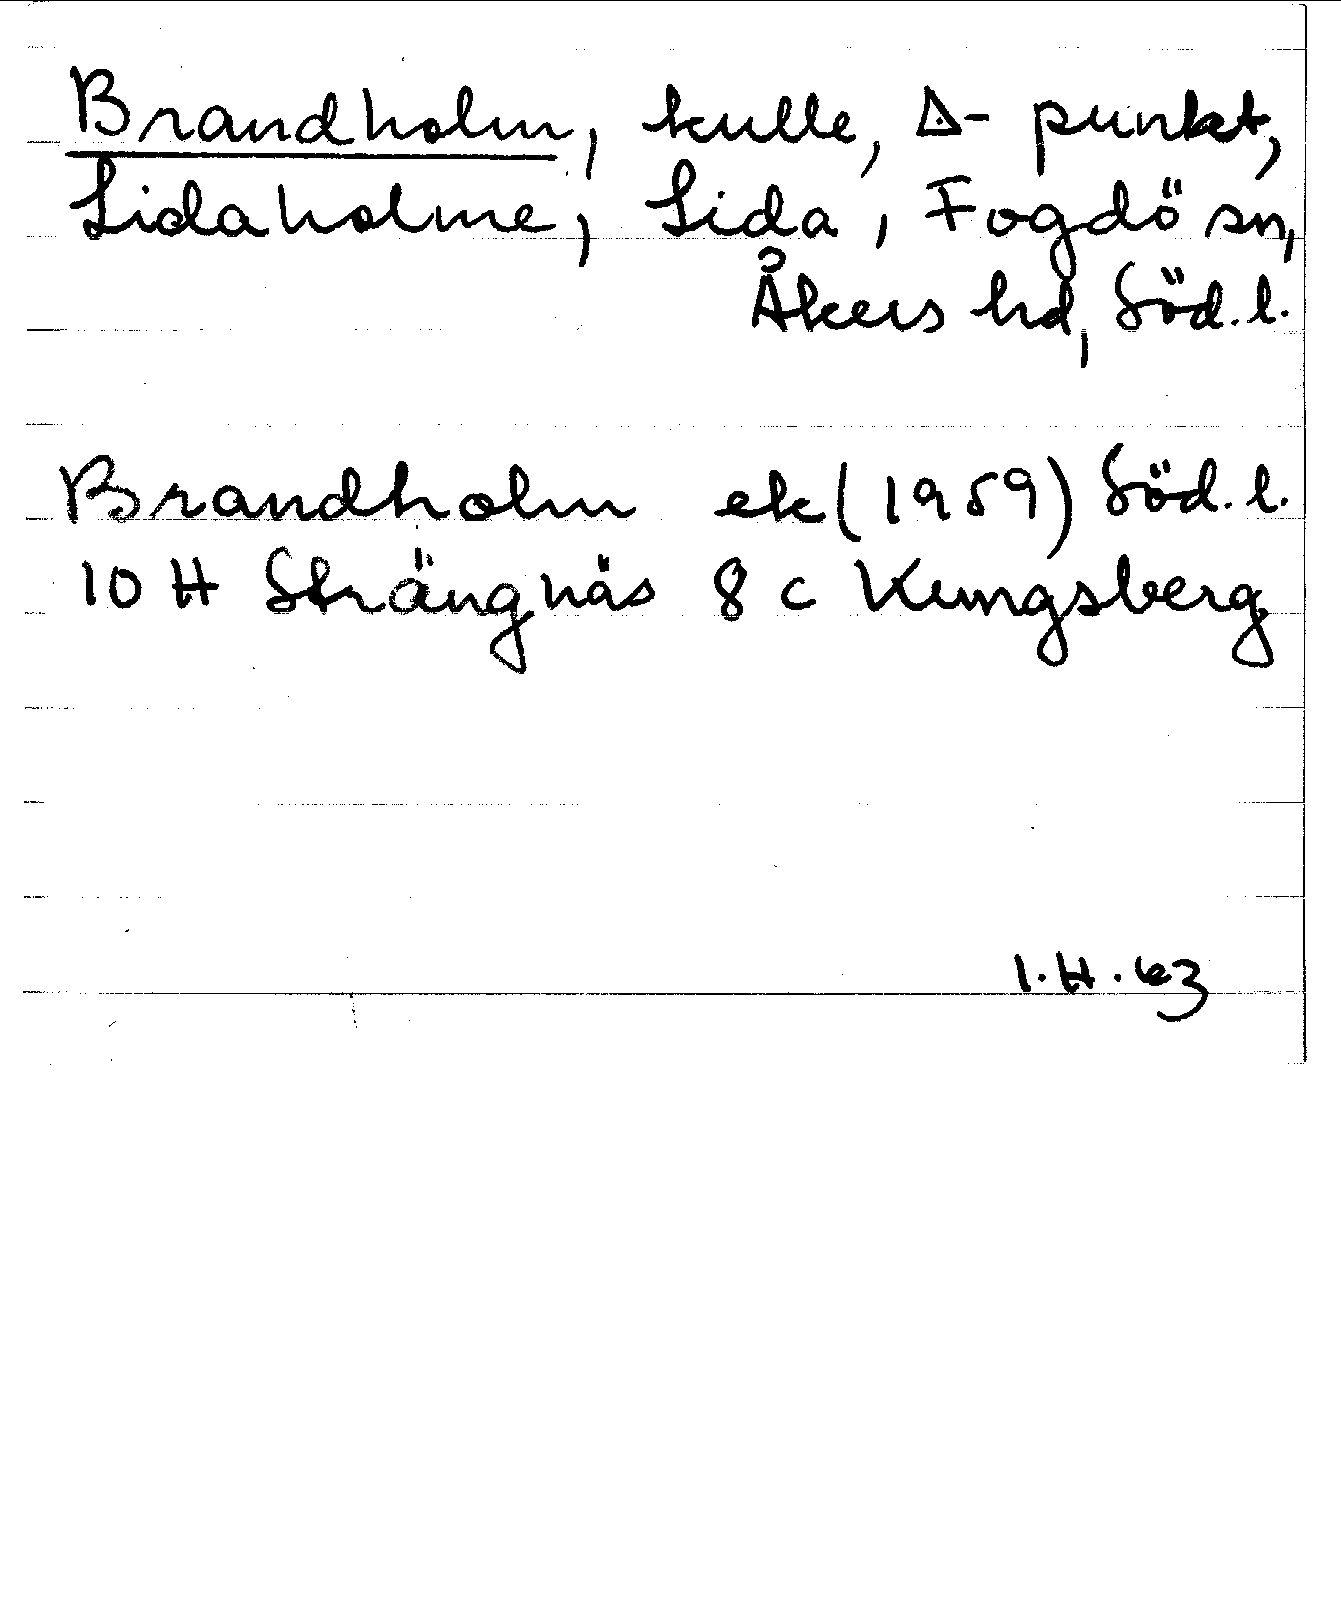 Brandholm, kulle, △- punkt,
Lidaholme, Lida, Fogdö sn,
Åkers hd, Söd. l.
Brandholm ek (1959) Söd. l.
10 H Strängnäs 8 c Kungsberg
I. H. 63